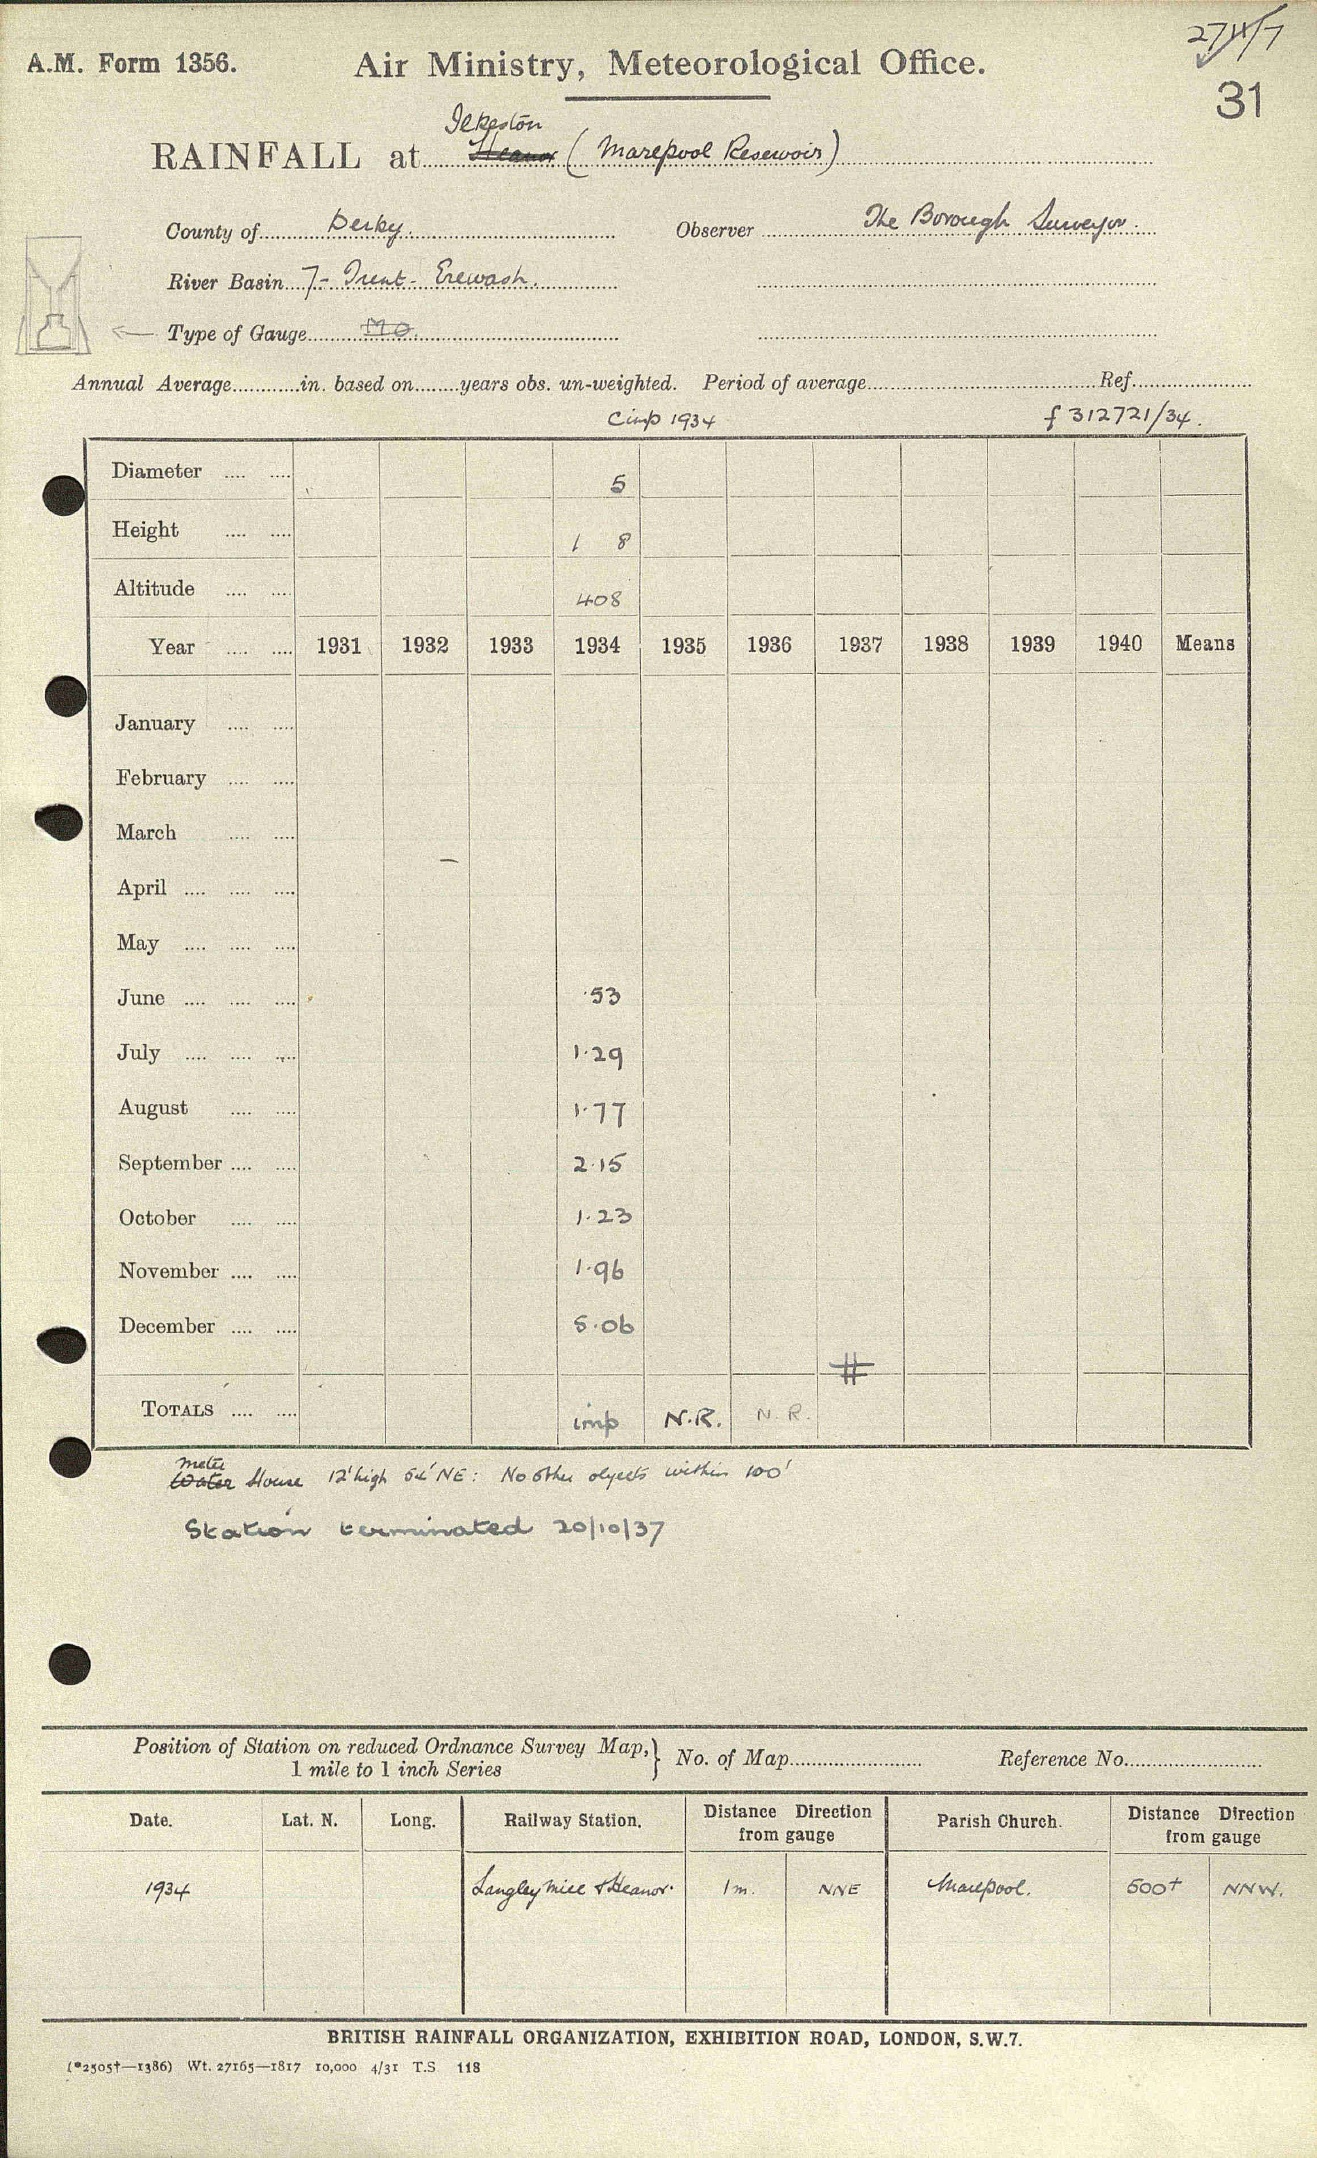 A.M. Form 1356.
Air Ministry, Meteorological Office.
31
Ilkeston
RAINFALL at Heanor (Marepool Reservoir)
County of Derby. Observer The Borough Surveyor.
River Basin 7- Trent - Erewash.
Type of Gauge MO.
Annual Average in. based on years obs. un-weighted. Period of average Ref.
Cirip 1934 f 312721/34.
Diameter 5
Height 1 8
Altitude 408
Year 1931 1932 1933 1934 1935 1936 1937 1938 1939 1940 Means
January
February
March
April
May
June ·53
July 1·29
August 1·77
September 2·15
October 1·23
November 1·96
December 5·06
#
TOTALS imp N.R. N.R.
meter
Water House 12' high NE: No other objects within 100'
Station terminated 20/10/37
Position of Station on reduced Ordnance Survey Map,} No. of Map Reference No.
1 mile to 1 inch Series
Date. Lat. N. Long. Railway Station. Distance Direction from gauge Parish Church. Distance Direction from gauge
1934 Langley Mill & Heanor. 1m. NNE Marlpool. NNW.
BRITISH RAINFALL ORGANIZATION, EXHIBITION ROAD, LONDON, S.W.7.
(*2505†—1386) Wt. 27165—1817 10,000 4/31 T.S 118